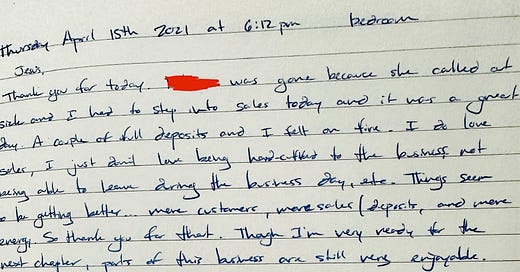 Thursday April 15th 2021 at 6:12 pm bedroom
Jesus,
Thank you for today. was gone because she called out
sick and I had to step into sales today and it was a great
day. A couple of full deposits and I felt on fire. I do love
sales, I just don't love being hand-cuffed to the business, not
being able to leave during the business day, etc. Things seem
to be getting better... more customers, more sales/deposits, and more
energy. So thank you for that. Though I'm very ready for the
next chapter, parts of this business are still very enjoyable.